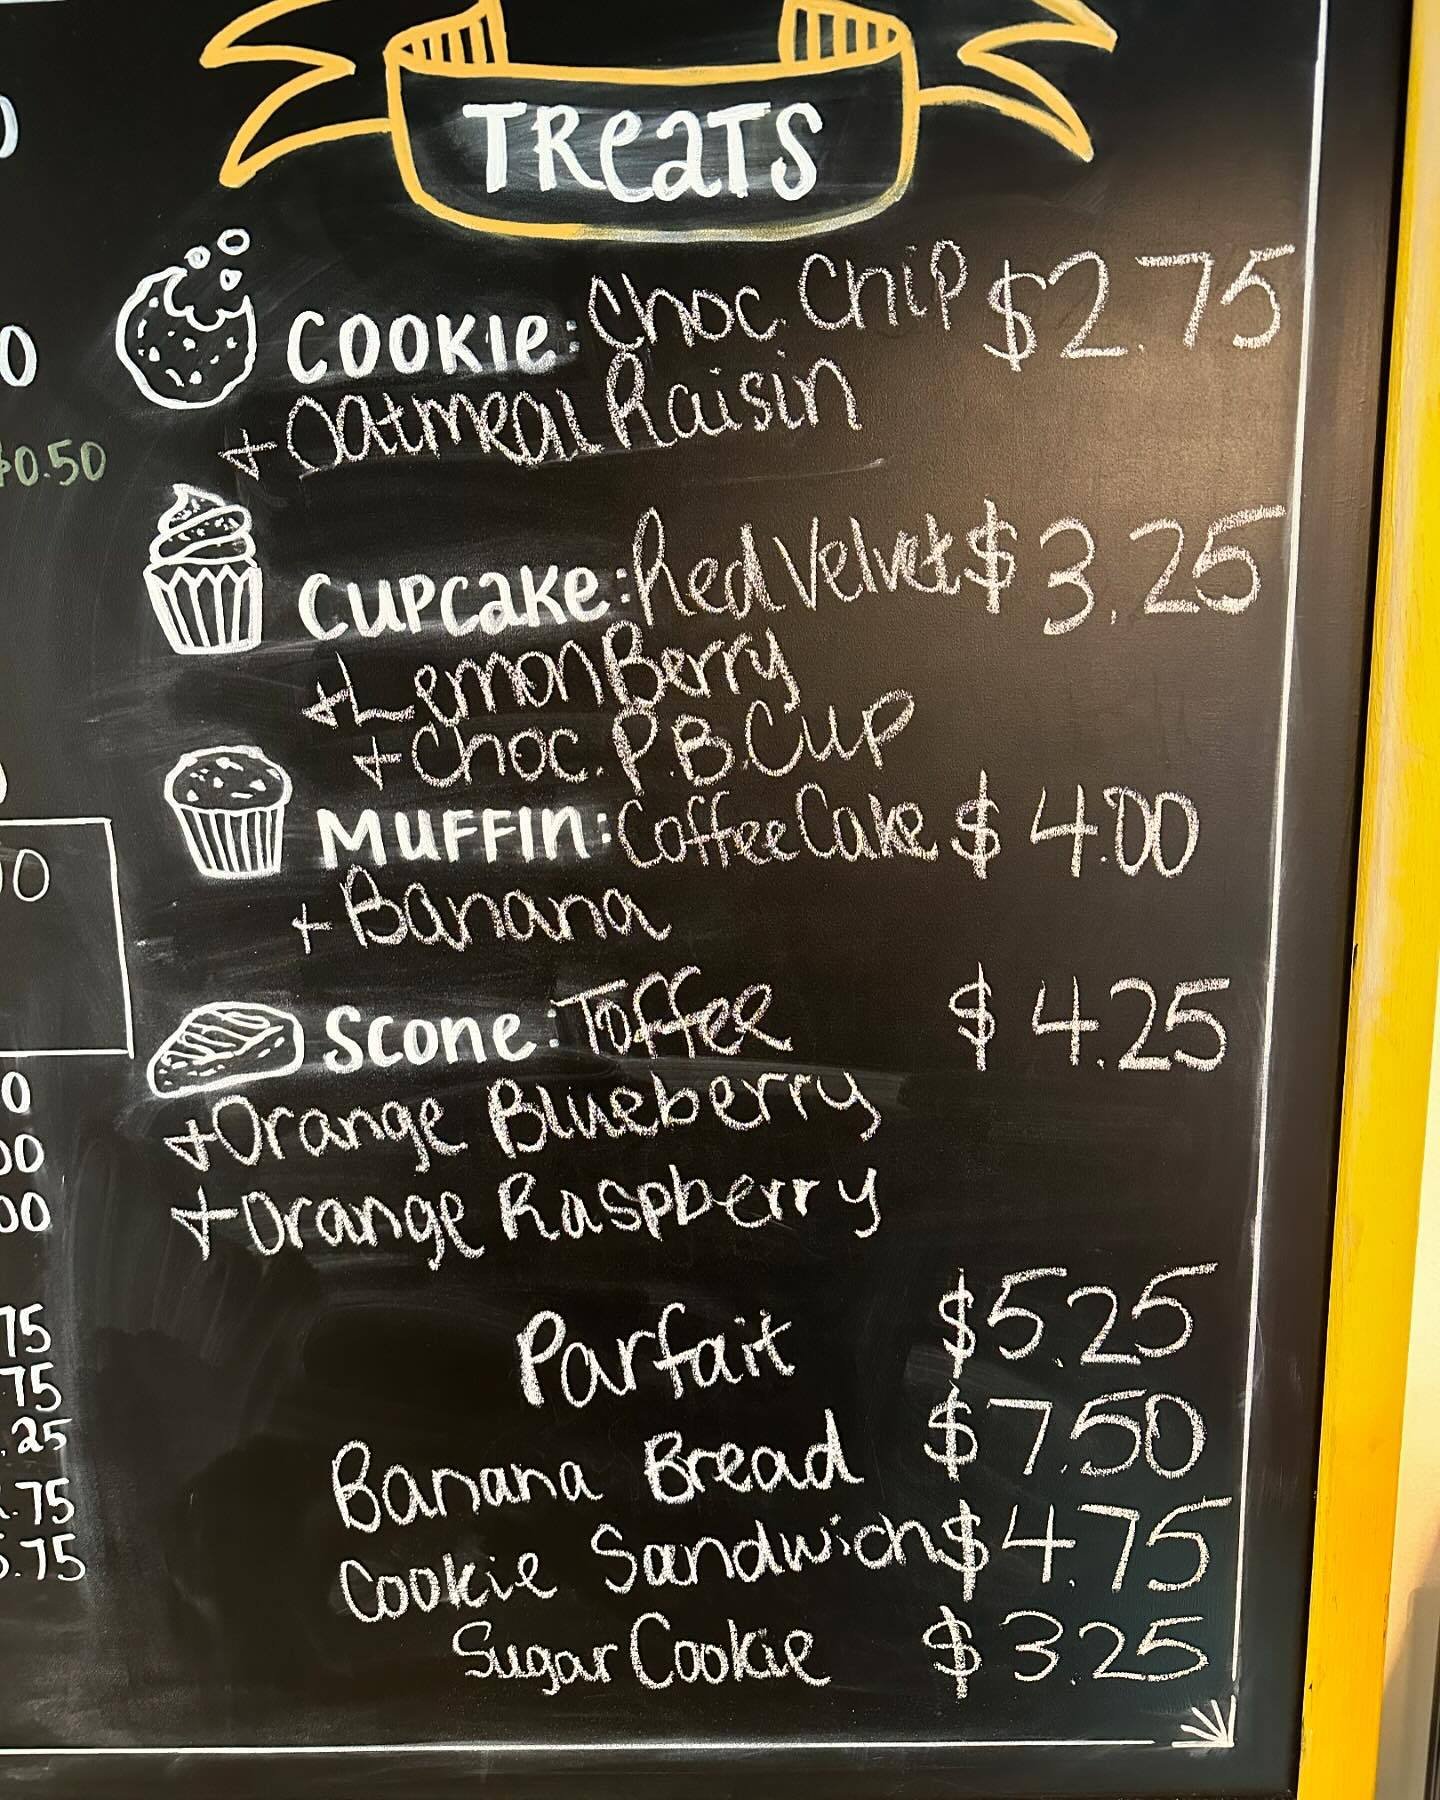 TREATS
COOKIE: Choc. Chip $2.75
+ Oatmeal Raisin
$0.50
CUPCAKE: Red Velvet $3.25
+ Lemon Berry
+ Choc. P.B. Cup
MUFFIN: Coffee Cake $4.00
+ Banana
SCONE: Toffee $4.25
+ Orange Blueberry
+ Orange Raspberry
Parfait $5.25
Banana Bread $7.50
Cookie Sandwich $4.75
Sugar Cookie $3.25
0
00
00
75
.75
.25
.75
5.75